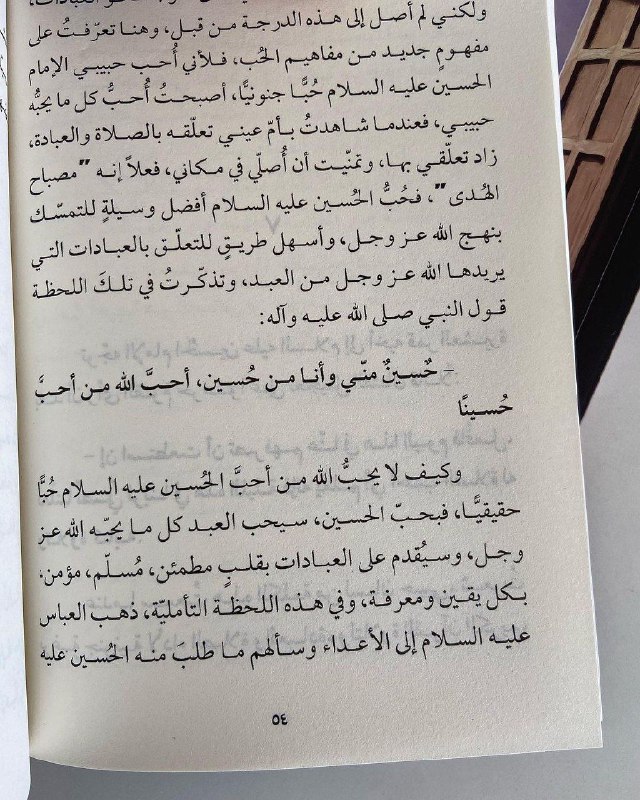 العبادات،
ولكني لم أصل إلى هذه الدرجة من قبل، وهنا تعرّفتُ على
مفهومٍ جديد من مفاهيم الحُب، فلأني أُحب حبيبي الإمام
الحسين عليه السلام حُبًّا جنونيًّا، أصبحتُ أُحبُّ كل ما يحبُّه
حبيبي، فعندما شاهدتُ بأمّ عيني تعلّقه بالصلاة والعبادة،
زاد تعلّقي بها، وتمنّيت أن أُصلّي في مكاني، فعلاً إنه "مصباح
الهُدى"، فحُبُّ الحُسين عليه السلام أفضل وسيلةٍ للتمسّك
بنهج الله عز وجل، وأسهل طريقٍ للتعلّق بالعبادات التي
يريدها الله عز وجل من العبد، وتذكّرتُ في تلكَ اللحظة
قول النبي صلى الله عليه وآله:
– حُسينٌ منّي وأنا من حُسين، أحبَّ الله من أحبَّ
حُسينًا
وكيف لا يحبُّ الله من أحبَّ الحُسين عليه السلام حُبًّا
حقيقيًّا، فبحبّ الحسين، سيحب العبد كل ما يحبّه الله عز
وجل، وسيُقدم على العبادات بقلبٍ مطمئن، مُسلّم، مؤمن،
بكل يقين ومعرفة، وفي هذه اللحظة التأمليّة، ذهب العباس
عليه السلام إلى الأعداء وسألهم ما طلبَ منه الحُسين عليه
٥٤